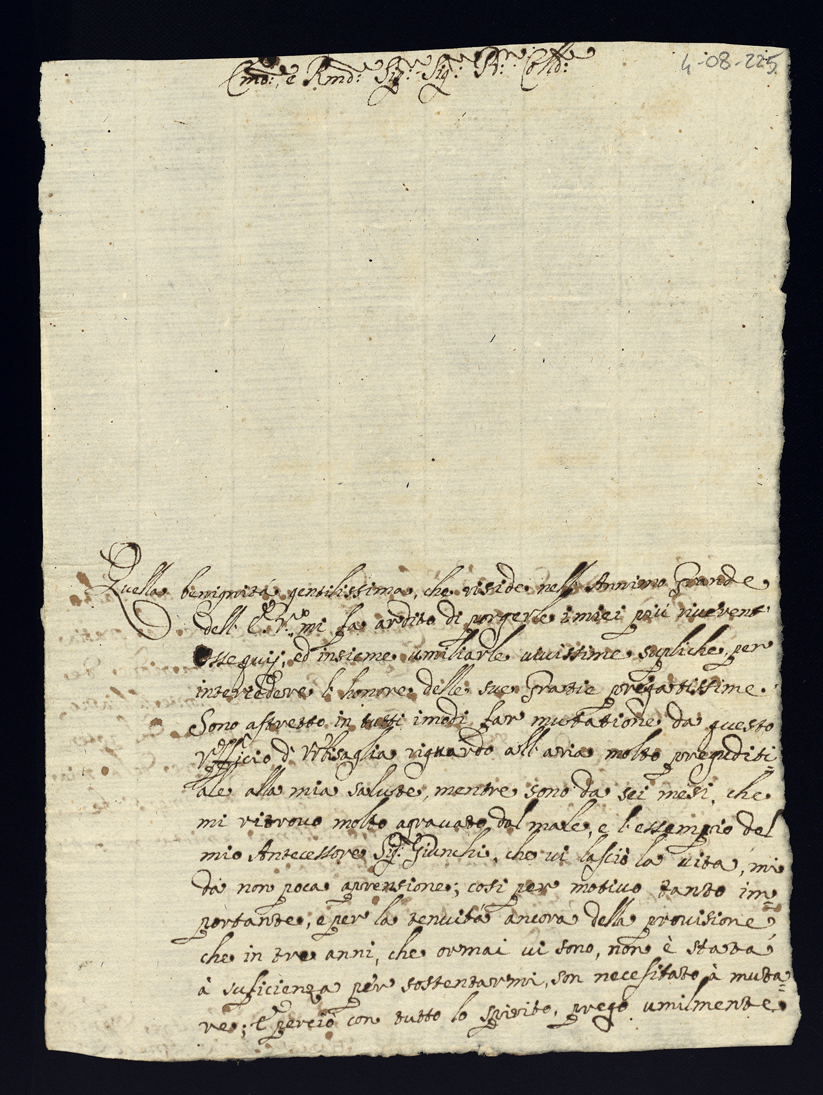 Emo:, e Rmo: Sig: Sig: P: Colmo:
4-08-225
Quella benignità gentilissima, che risiede nell' Annimo Grande
dell' E. V. mi fa ardito di porgerle i miei più riverent
ossequij, ed insieme umiliarle vivissime supliche, per
intercedere l' honore delle sue Gratie pregiatissime.
Sono astretto in tutti i modi far mutatione da questo
Ufficio d' Urbisaglia riguardo all' aria molto preguditi=
ale alla mia salute, mentre sono da sei mesi, che
mi ritrovo molto agravato dal male, e l' essempio del
mio Antecessore Sig: Giunchi, che vi lasciò la vita, mi
dà non poca aprensione; così per motivo tanto im=
portante, e per la tenuità ancora della provisione
che in tre anni, che ormai vi sono, non è stata
à suficienza per sostentarmi, son necesitato à muta=
re; E perciò con tutto lo spirito, prego umilmente